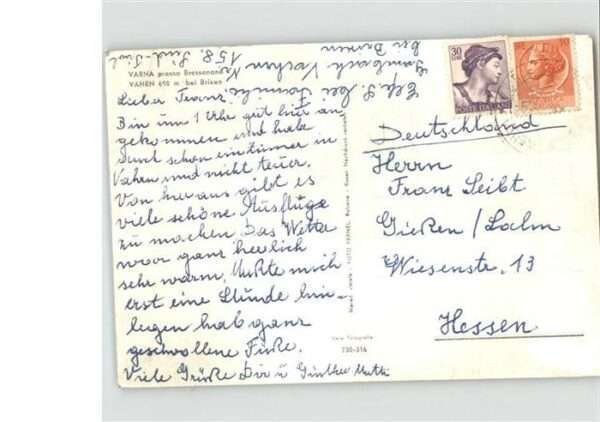 VARNA presso Bressanone
VAHRN 690 m bei Brixen
Lieber Franz
Bin um 1 Uhr gut hier an
gekommen und hab
auch schon ein Zimmer in
Vahrn und nicht teuer.
Von hier aus gibt es
viele schöne Ausflüge
zu machen. Das Wetter
war ganz herrlich
sehr warm, Mußte mich
erst eine Stunde hin-
legen hab ganz
geschwollene Füße.
Viele Grüße Dir u Günther Mutti
bei Brixen
Nr 158 Süd-Tirol
bei Familie
30
LIRE
Vera Fotografia
730-316
Deutschland
Herrn
Franz Seibt
Gießen/Lahn
Wiesenstr. 13
Hessen